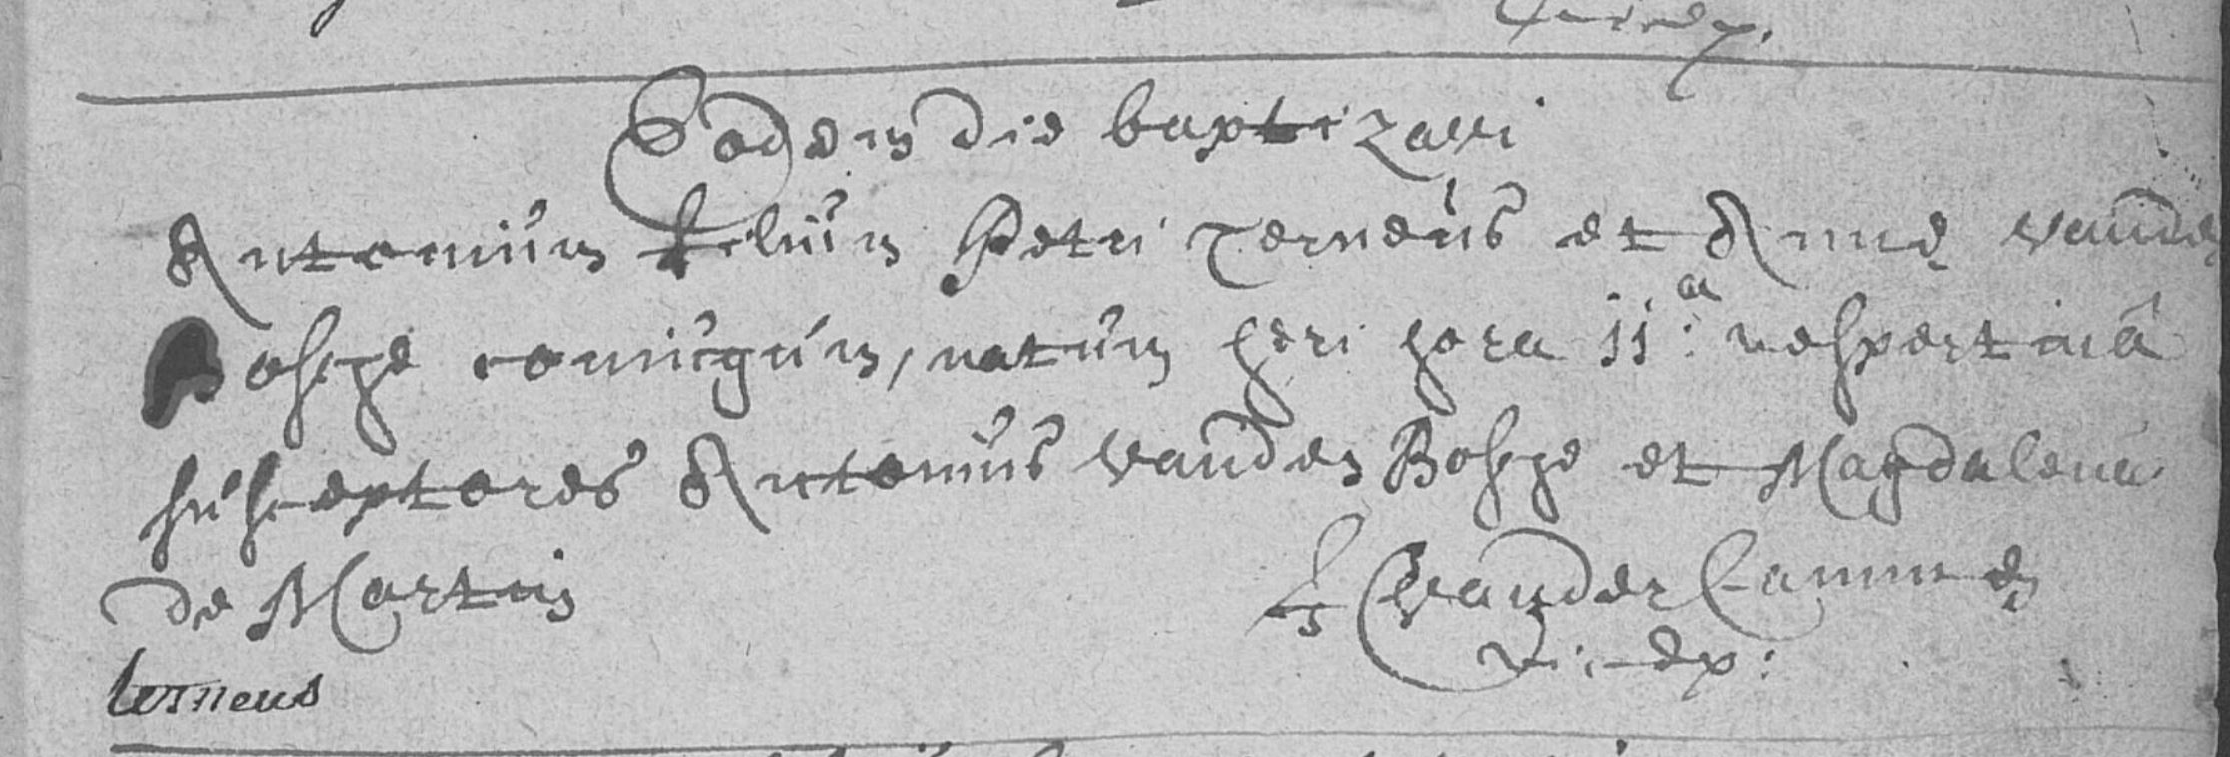 Eodem die baptizavi
Antonium filium Petri Terneus et Annę vanden
Bossche coniugum, natum heri hora 11.a vespertina
susceptores Antonius vanden Bossche et Magdalena
de Martin
vander Cammen
vicedp:
terneus